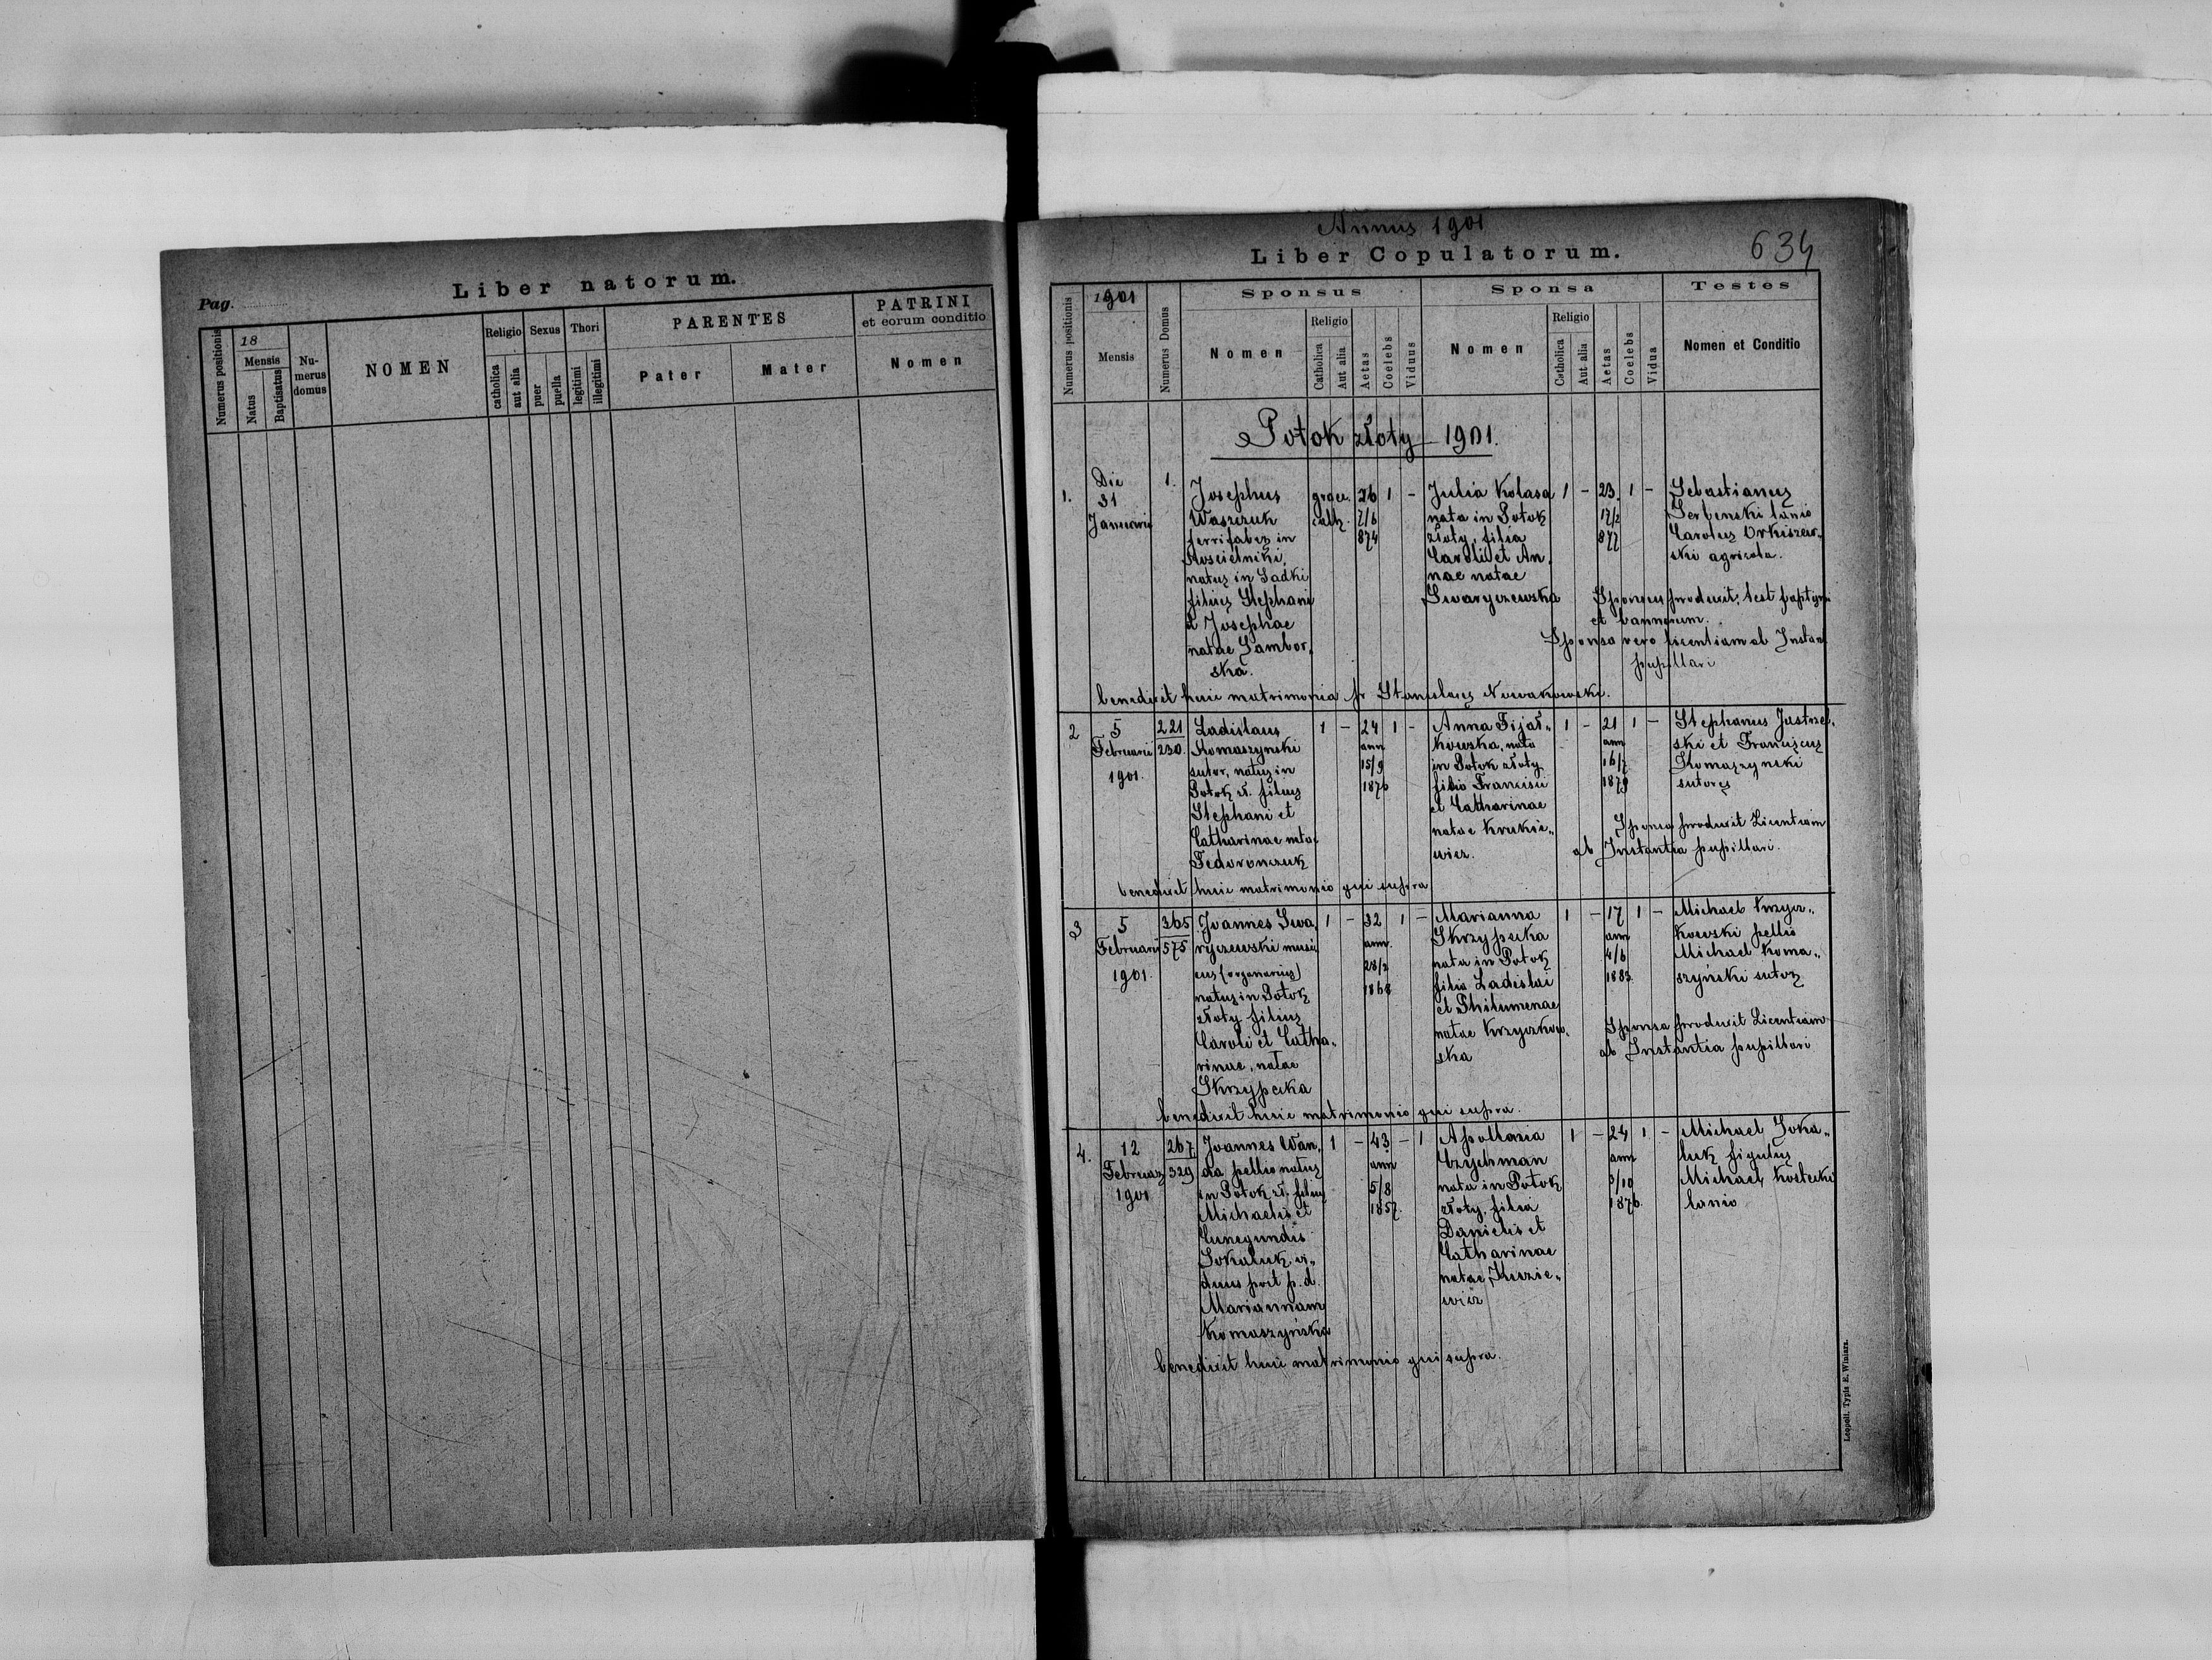 Pag.
Liber natorum.
Numerus positionis
18
Mensis
Natus
Baptisatus
Nu-
merus
domus
NOMEN
Religio
catholica
aut alia
Sexus
puer
puella
Thori
legitimi
illegitimi
PARENTES
Pater
Mater
PATRINI
et eorum conditio
Nomen
Annus 1901
Liber Copulatorum.
634
Numerus positionis
1901
Mensis
Numerus Domus
Sponsus
Nomen
Religio
Catholica
Aut alia
Aetas
Coelebs
Viduus
Sponsa
Nomen
Religio
Catholica
Aut alia
Aetas
Coelebs
Vidua
Testes
Nomen et Conditio
Potok złoty 1901.
1.
Die
31
Januarii
1.
Josephus
Waszczuk
ferrifaber in
Kościelniki,
natus in Sadki
filius Stephani
et Josephae
natae Sambor,
ska.
graec.
cath.
26
7/6
874
1
-
Julia Kolasa
nata in Potok
złoty, filia
Caroli et An,
nae natae
Swaryczewska
1
-
23.
17/2
877
1
-
Sebastianus
Serbenski lanio
Carolus Orkiszew,,
ski agricola.
Sponsus produxit, test baptism
et bannorum.
Sponsa vero licentiam ab Instant
pupillari
benedixit huic matrimonia fr Stanislaus Nowakowski.
2
5
Februarii
1901.
221
230.
Ladislaus
Komaszynski
sutor, natus in
Potok zł. filius
Stephani et
Catharinae natae
Fedoronczuk
1
-
24
ann
15/9
1876
1
-
Anna Fijał,,
kowska, nata
in Potok złoty
filia Francisci
et Catharinae
natae Krukie,,
wicz.
1
-
21
ann
16/7
1879
1
-
Stephanus Jastrzeb,
ski et Franciscus
Komaszynski
sutores
Sponsa produxit Licentiam
ab Instantia pupillari.
benedixit huic matrimonio qui supra
3
5
Februarii
1901.
365
575
Joannes Swa,
ryczewski musi
cus (organarius)
natus in Potok
złoty filius
Caroli et Catha,,
rinae, natae
Skrzypcka
1
-
32
ann.
28/2
1868
1
-
Marianna
Skrzypcka
nata in Potok
filia Ladislai
et Philumenae
natae Krzyczkow,
ska
1
-
17
ann
4/6
1883.
1
-
Michael Krzycz,,
kowski pellio
Michael Koma,,
szyński sutor
Sponsa produxit Licentiam
ab Instantia pupillari
benedixit huic matrimonio qui supra.
4.
12
Februar
1901
267
329
Joannes Wan,
da pellio natus
in Potok zł. filius
Michaelis et
Cunegundis
Sokaluk, vi,,
duus post p. d.
Mariannam
Komaszyńska
1
-
43
ann
5/8
1857.
-
1
Apollonia
Czychman
nata in Potok
złoty, filia
Danielis et
Catharinae
natae Kuzie,,
wicz
1
-
24
ann
3/10
1876.
1
-
Michael Soka,,
luk figulus
Michael Kostecki
lanio
benedixit huic matrimonio qui supra.
Leopoli. Typis E. Winiarz.